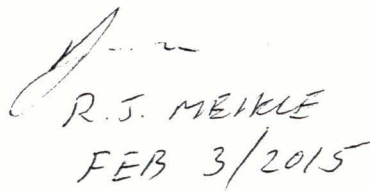 R.J. MEIKLE
FEB 3/2015